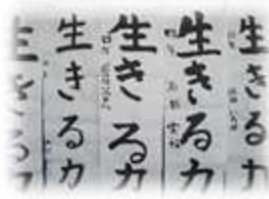 生きる力
生きる力
生きる力
生きる力
生きる力